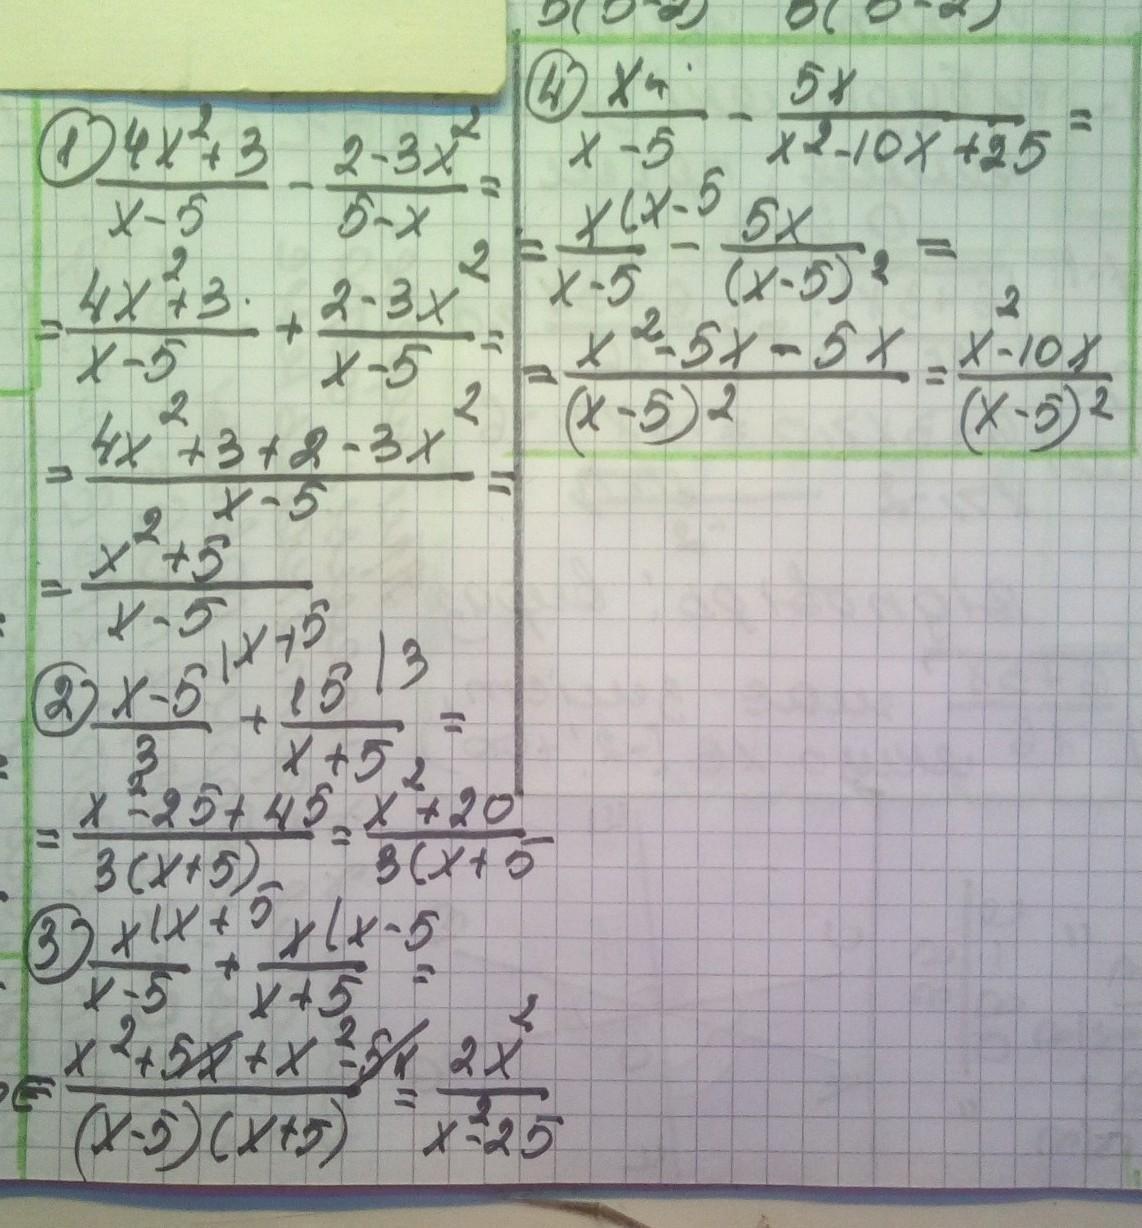 ① (4x²+3)/(x-5) - (2-3x²)/(5-x) =
= (4x²+3)/(x-5) + (2-3x²)/(x-5) =
= (4x²+3+2-3x²)/(x-5) =
= (x²+5)/(x-5)
② (x-5)/3 |x+5 + 15/(x+5) |3 =
= (x²-25+45)/(3(x+5)) = (x²+20)/(3(x+5
③ x/(x-5) (x+5 + x/(x+5) (x-5 =
= (x²+5x+x²-5x)/((x-5)(x+5)) = 2x²/(x²-25)
④ /(x-5) - 5x/(x²-10x+25) =
= x/(x-5) (x-5 - 5x/(x-5)² =
= (x²-5x-5x)/(x-5)² = (x²-10x)/(x-5)²